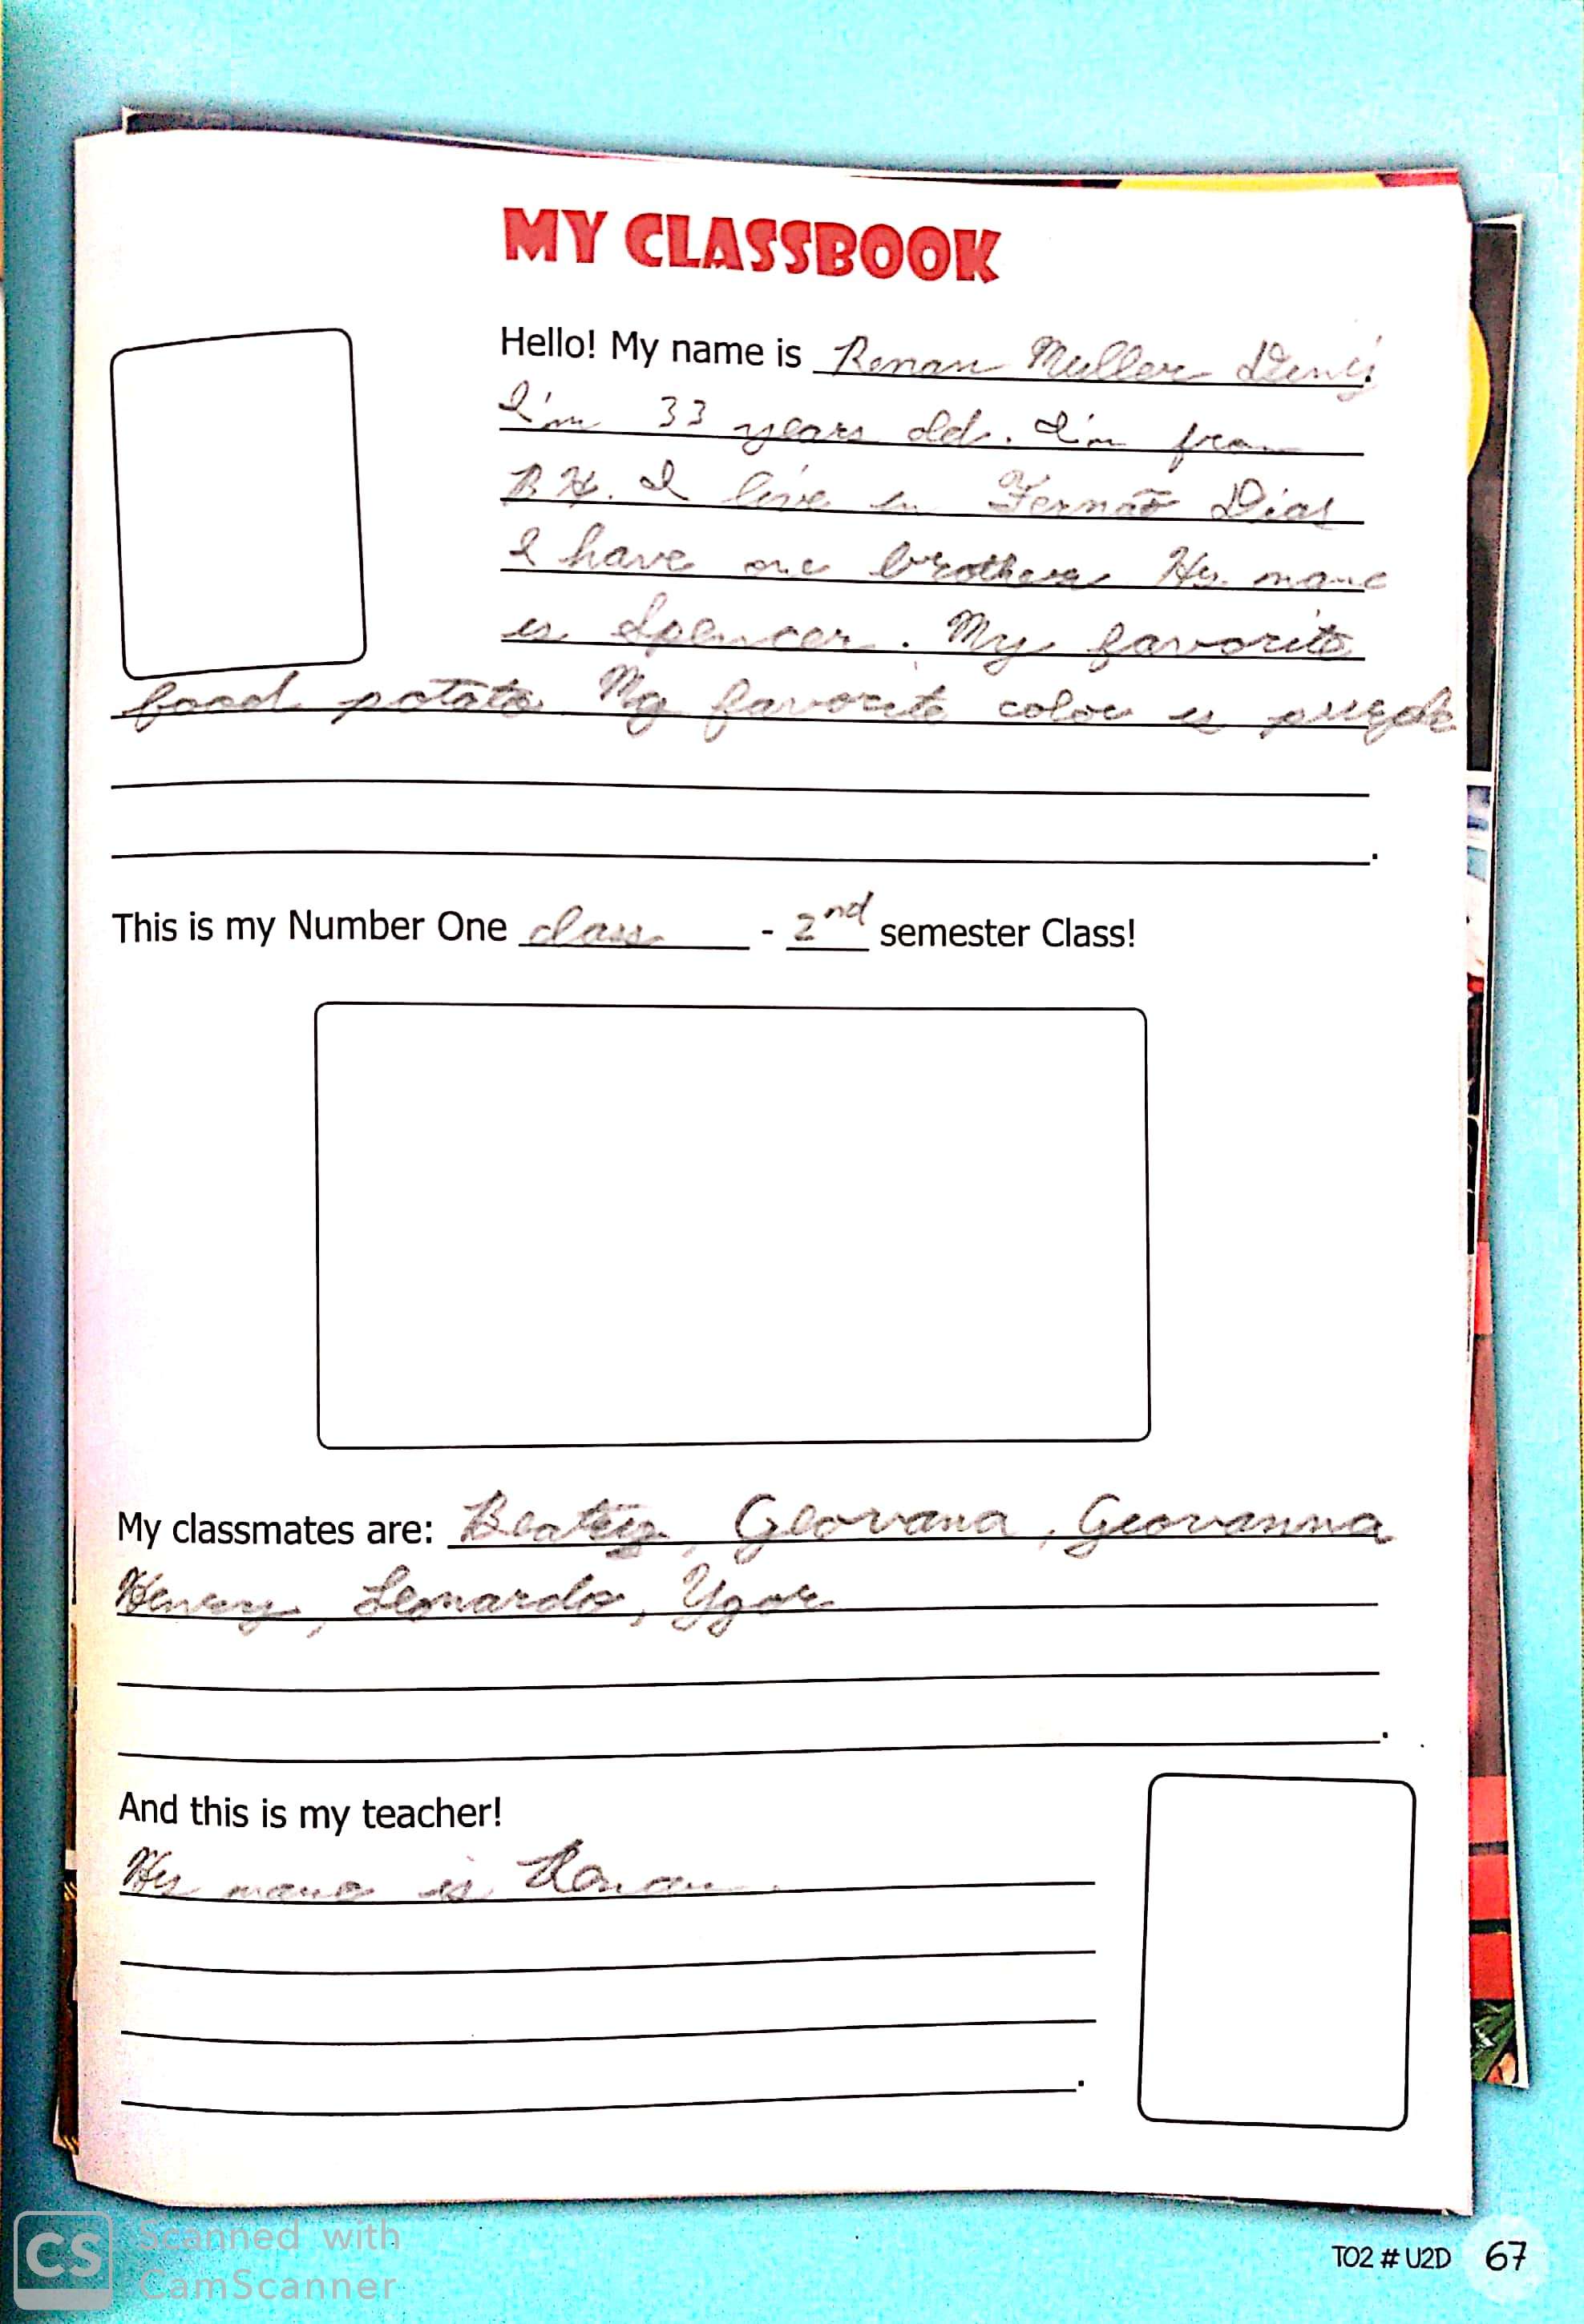 MY CLASSBOOK
Hello! My name is Renan Muller Diniz
I'm 33 years old. I'm from
BH. I live in Fernão Dias
I have one brother His name
is Spencer. My favorite
food potato My favorite color is purple
This is my Number One class - 2nd semester Class!
My classmates are: Beatriz, Geovana, Geovanna
Henry, Leonardo, Ygor
.
And this is my teacher!
His name is Renan.
.
CS Scanned with
CamScanner
TO2 # U2D 67